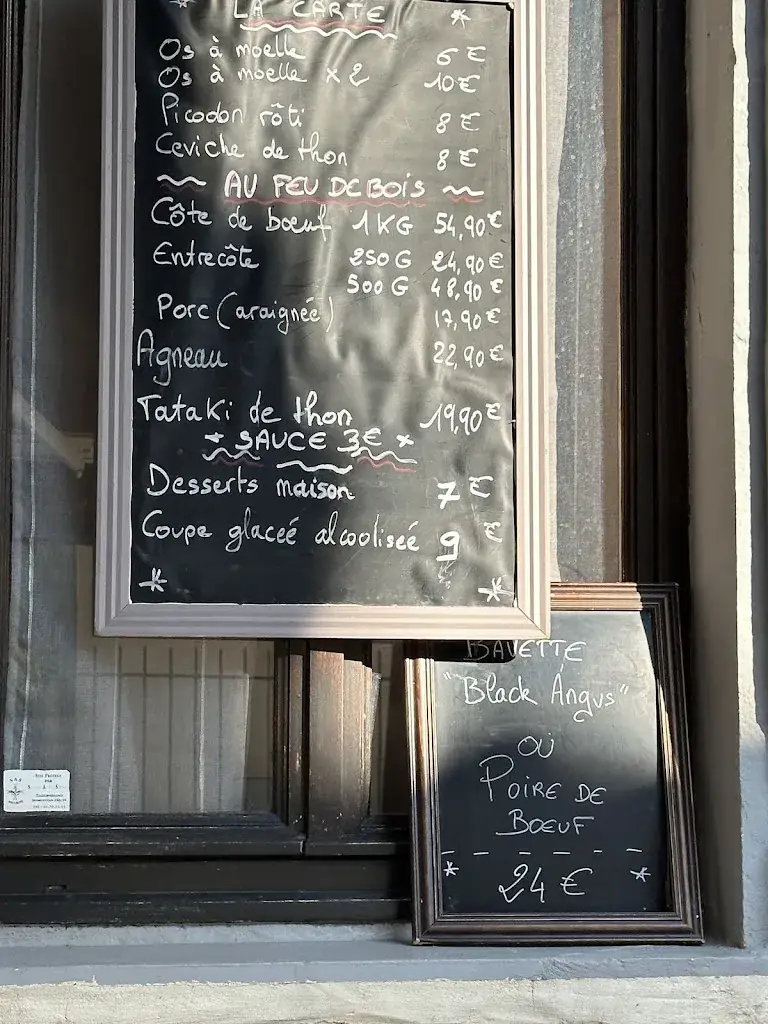 LA CARTE
Os à moelle 6 €
Os à moelle x 2 10 €
Picodon rôti 8 €
Ceviche de thon 8 €
AU FEU DE BOIS
Côte de bœuf 1 KG 54,90 €
Entrecôte 250 G 24,90 €
500 G 48,90 €
Porc (araignée) 17,90 €
Agneau 22,90 €
Tataki de thon 19,90 €
SAUCE 3€
Desserts maison 7 €
Coupe glaceé alcooliseé 9 €
BAVETTE
"Black Angus"
OÙ
POIRE DE
BŒUF
24 €